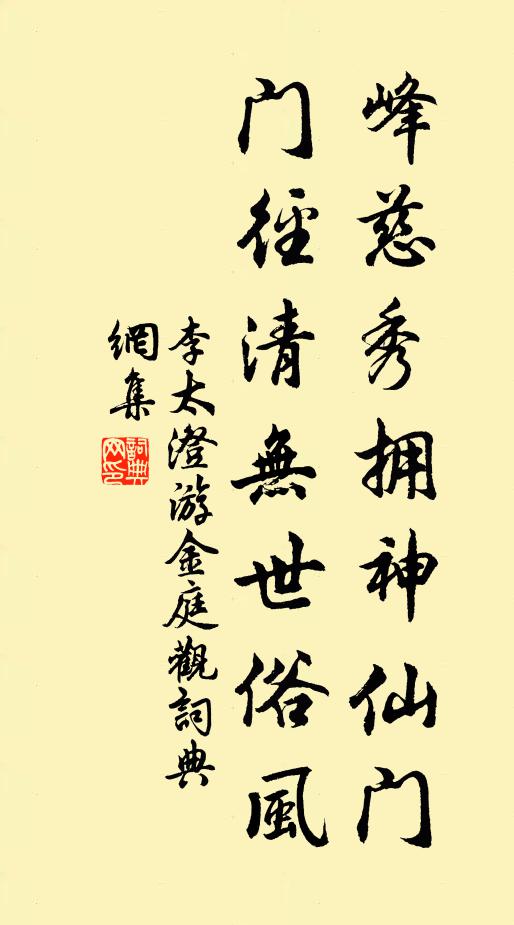 峰慈秀拥神仙门
门径清無世俗風
李太澄游金庭觀詞典
網集
詞典網印